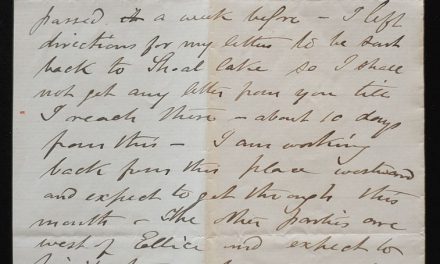 passed. a week before – I left
directions for my letters to be sent
back to Shoal Lake so I shall
not get any letter from you till
I reach there – about 10 days
from this – I am working
back from this place westward
and expect to get through this
month – The other parties are
west of Ellice and expect to